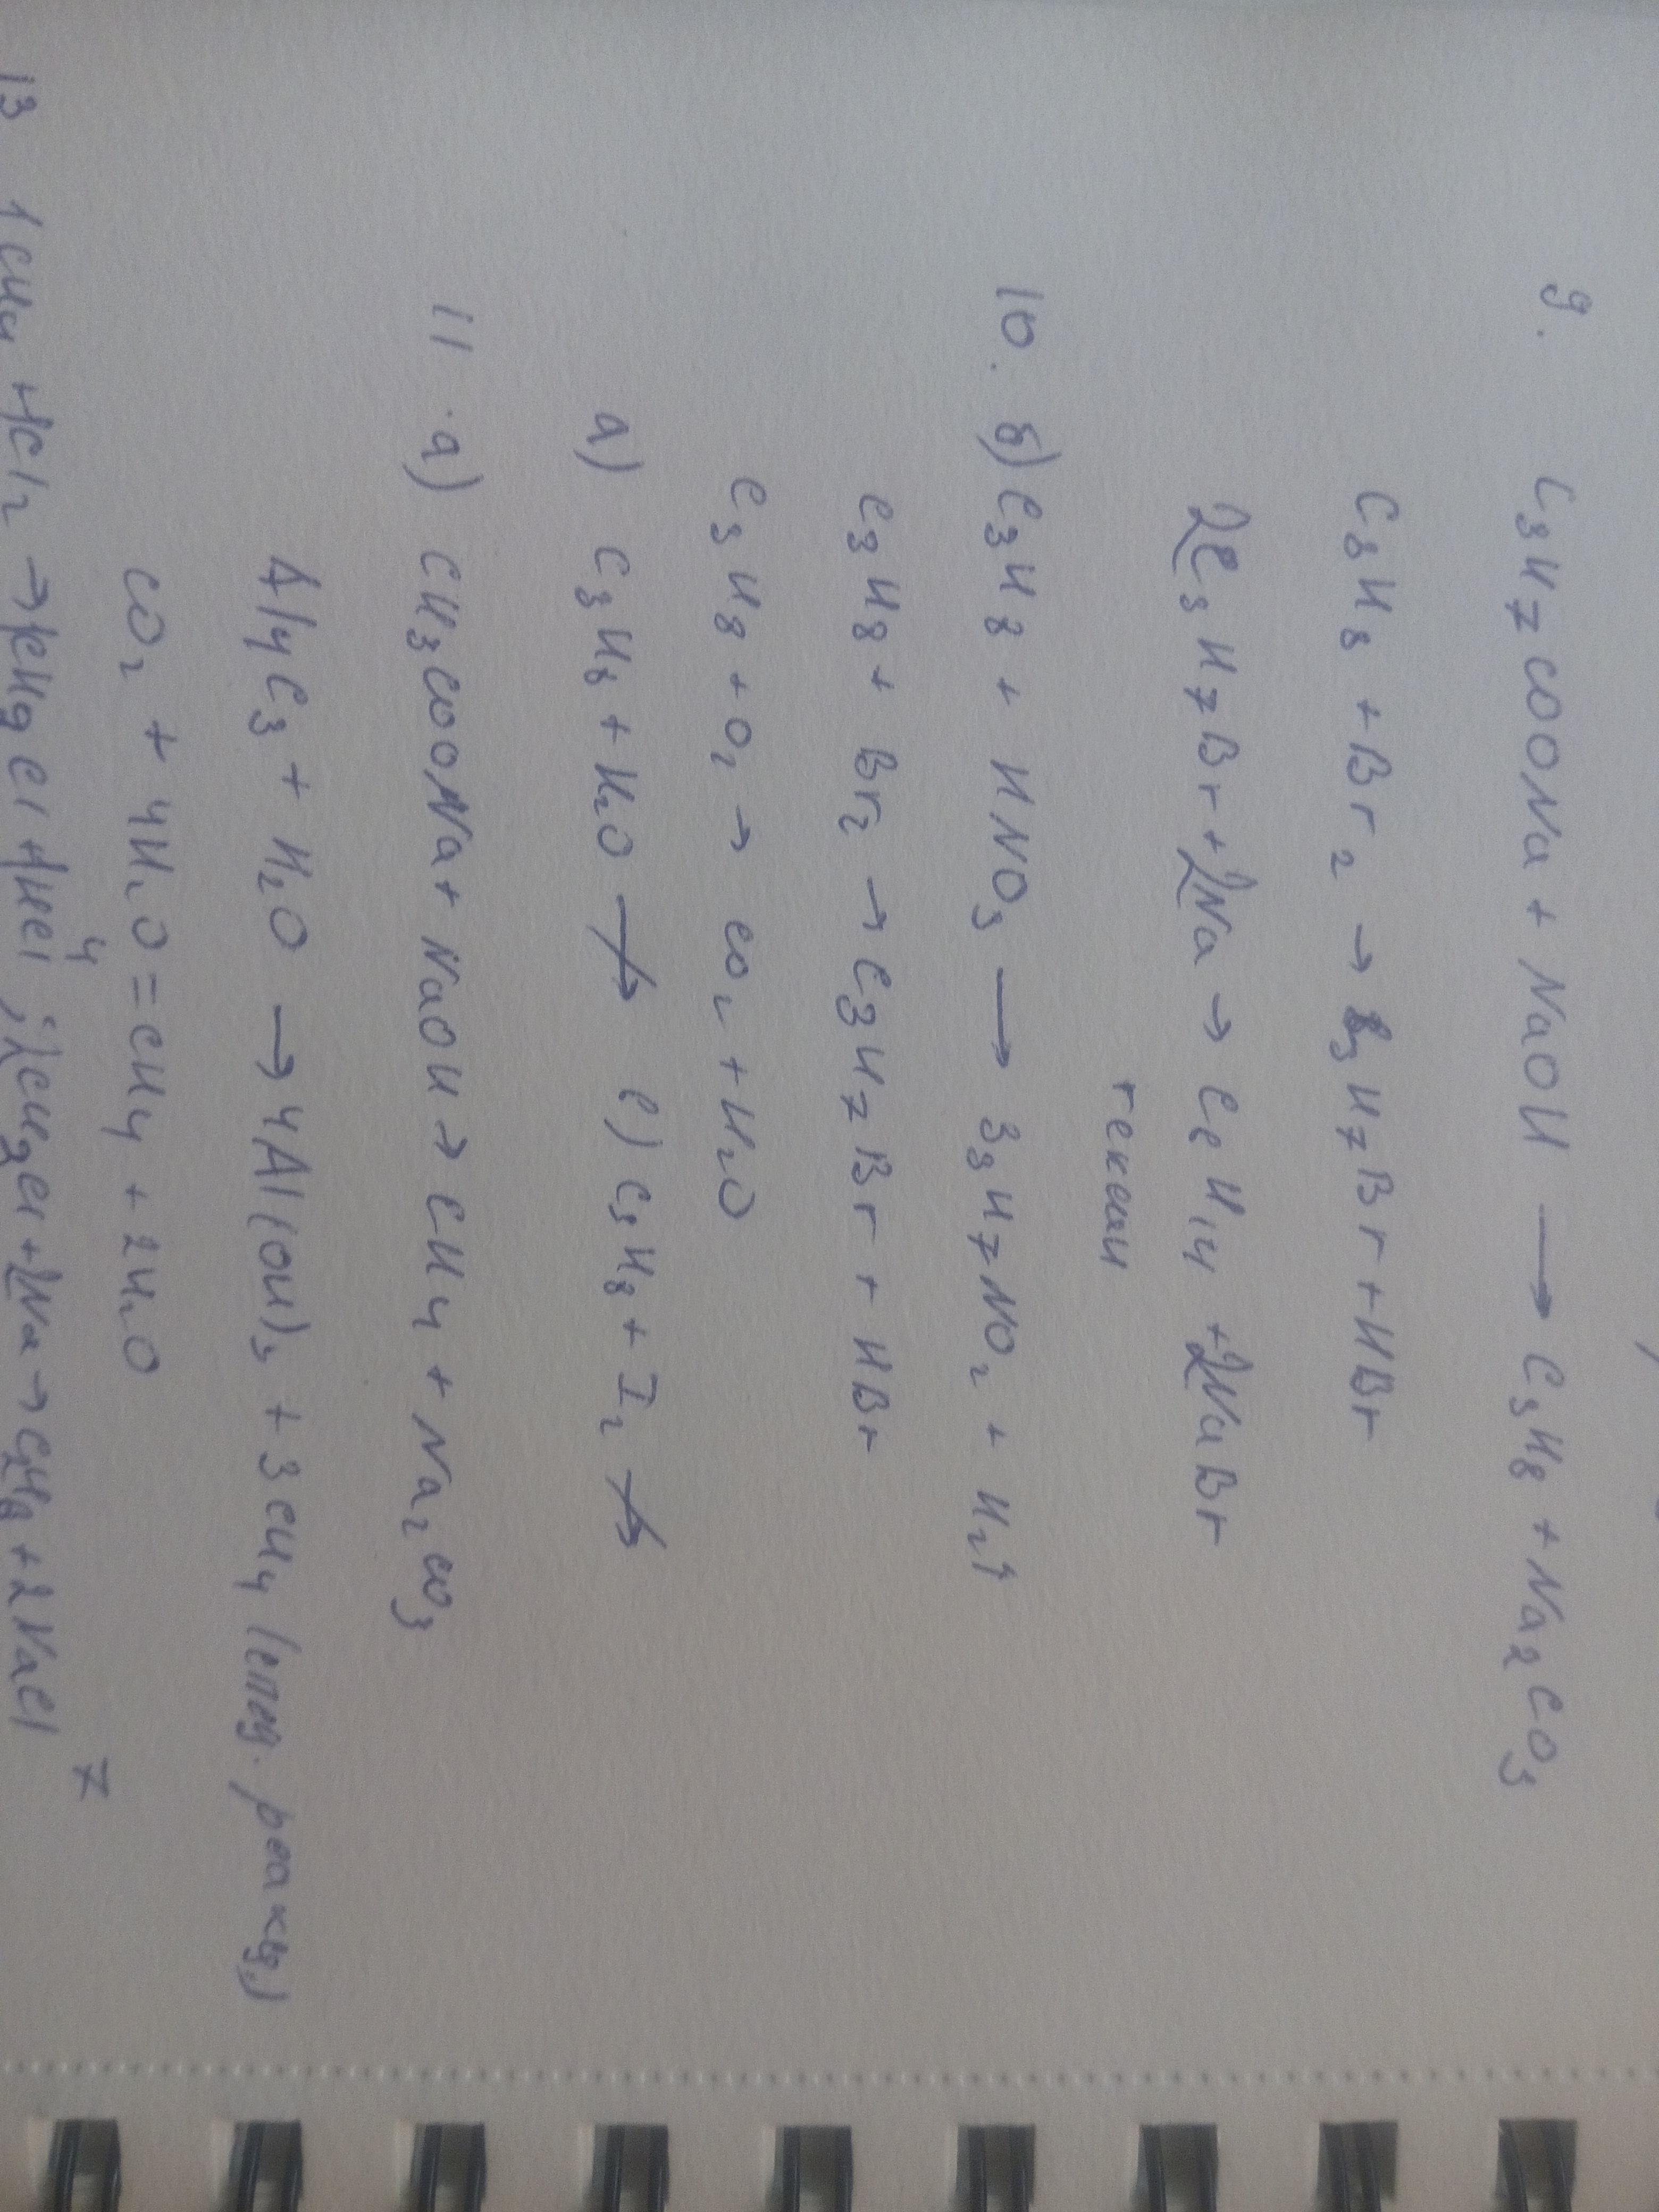 9. C₃H₇COONa + NaOH ⟶ C₃H₈ + Na₂CO₃
C₃H₈ + Br₂ → C₃H₇Br + HBr
2C₃H₇Br + 2Na → C₆H₁₄ + 2NaBr
гексан
10. б) C₃H₈ + HNO₃ ⟶ 3₃H₇NO₂ + H₂↑
C₃H₈ + Br₂ → C₃H₇Br + HBr
C₃H₈ + O₂ → CO₂ + H₂O
а) C₃H₈ + H₂O ↛ е) C₃H₈ + I₂ ↛
11. а) CH₃COONa + NaOH → CH₄ + Na₂CO₃
Al₄C₃ + H₂O ⟶ 4Al(OH)₃ + 3CH₄
CO₂ + 4H₂O = CH₄ + 2H₂O
13 1 CH₄ + Cl₂ → CH₃Cl + HCl ; 2CH₃Cl + 2Na → C₂H₆ + 2NaCl
7